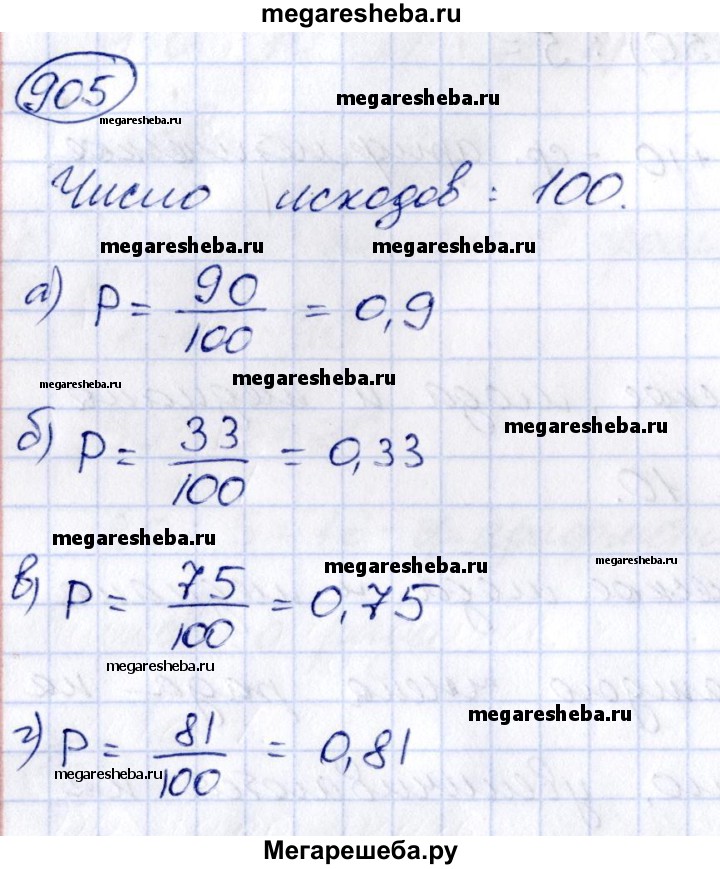 megaresheba.ru
905
megaresheba.ru
megaresheba.ru
Число исходов: 100.
megaresheba.ru megaresheba.ru
а) P = 90/100 = 0,9
megaresheba.ru megaresheba.ru
б) P = 33/100 = 0,33
megaresheba.ru
megaresheba.ru
megaresheba.ru megaresheba.ru
в) P = 75/100 = 0,75
megaresheba.ru
megaresheba.ru
г) P = 81/100 = 0,81
megaresheba.ru
Мегарешеба.ру